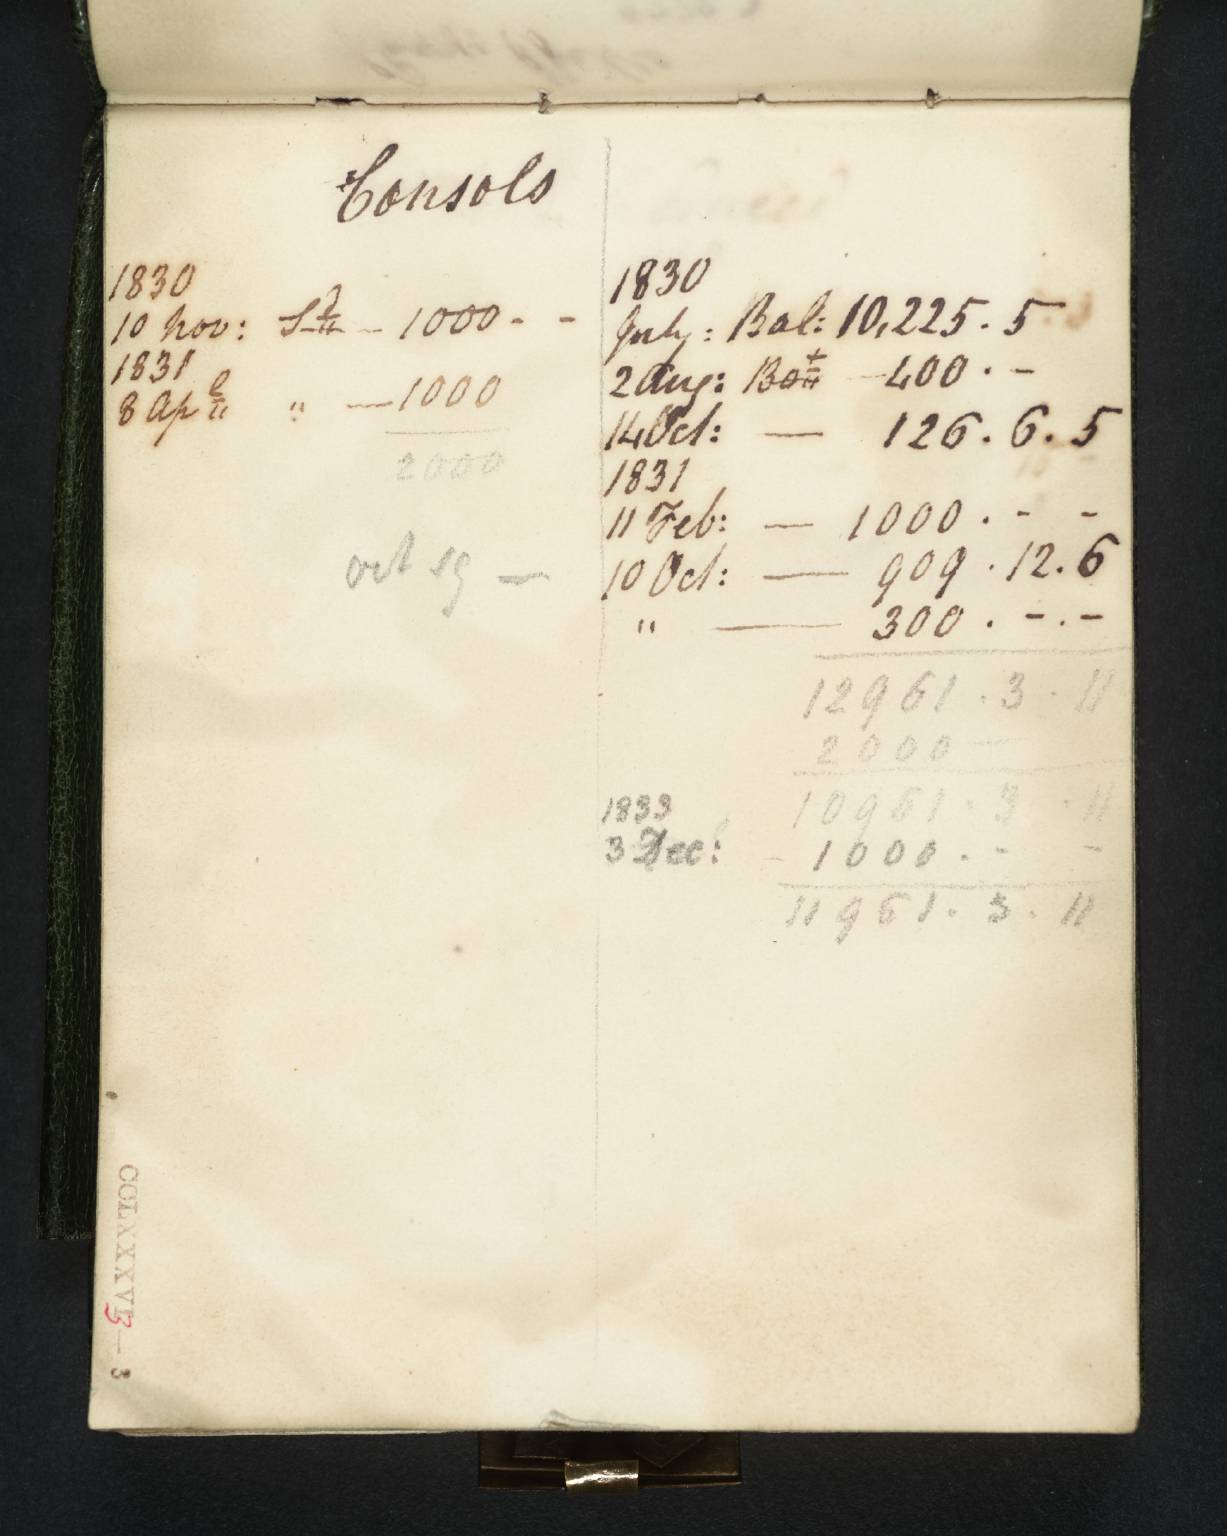 Consols
1830
10 Nov: Sᵈ — 1000 - -
1831
8 Apˡ " — 1000
2000
oct 19 —
1830
July: Bal: 10,225. 5
2 Aug: Boᵗ — 400 . -
14 Oct: — 126. 6. 5
1831
11 Feb: — 1000 . - -
10 Oct: — 909 . 12. 6
" — 300 . - . -
12961 . 3 . 11
2000 —
10961 . 3 . 11
1833
3 Dec: - 1000 . - -
11961 . 3 . 11
CCLXXXVI
B — 3